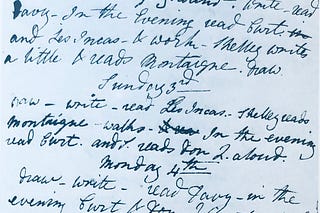 Davy - In the Evening read Curt
and Les Incas - & work - Shelley writes
a little & reads Montaigne. Draw.
Sunday 3rd
Draw - write - read Les Incas - Shelley reads
Montaigne - walks - In the evening
read Curt. and S reads Don Q. aloud.
Monday 4th
Draw - write - read Davy - in the
evening Curt &